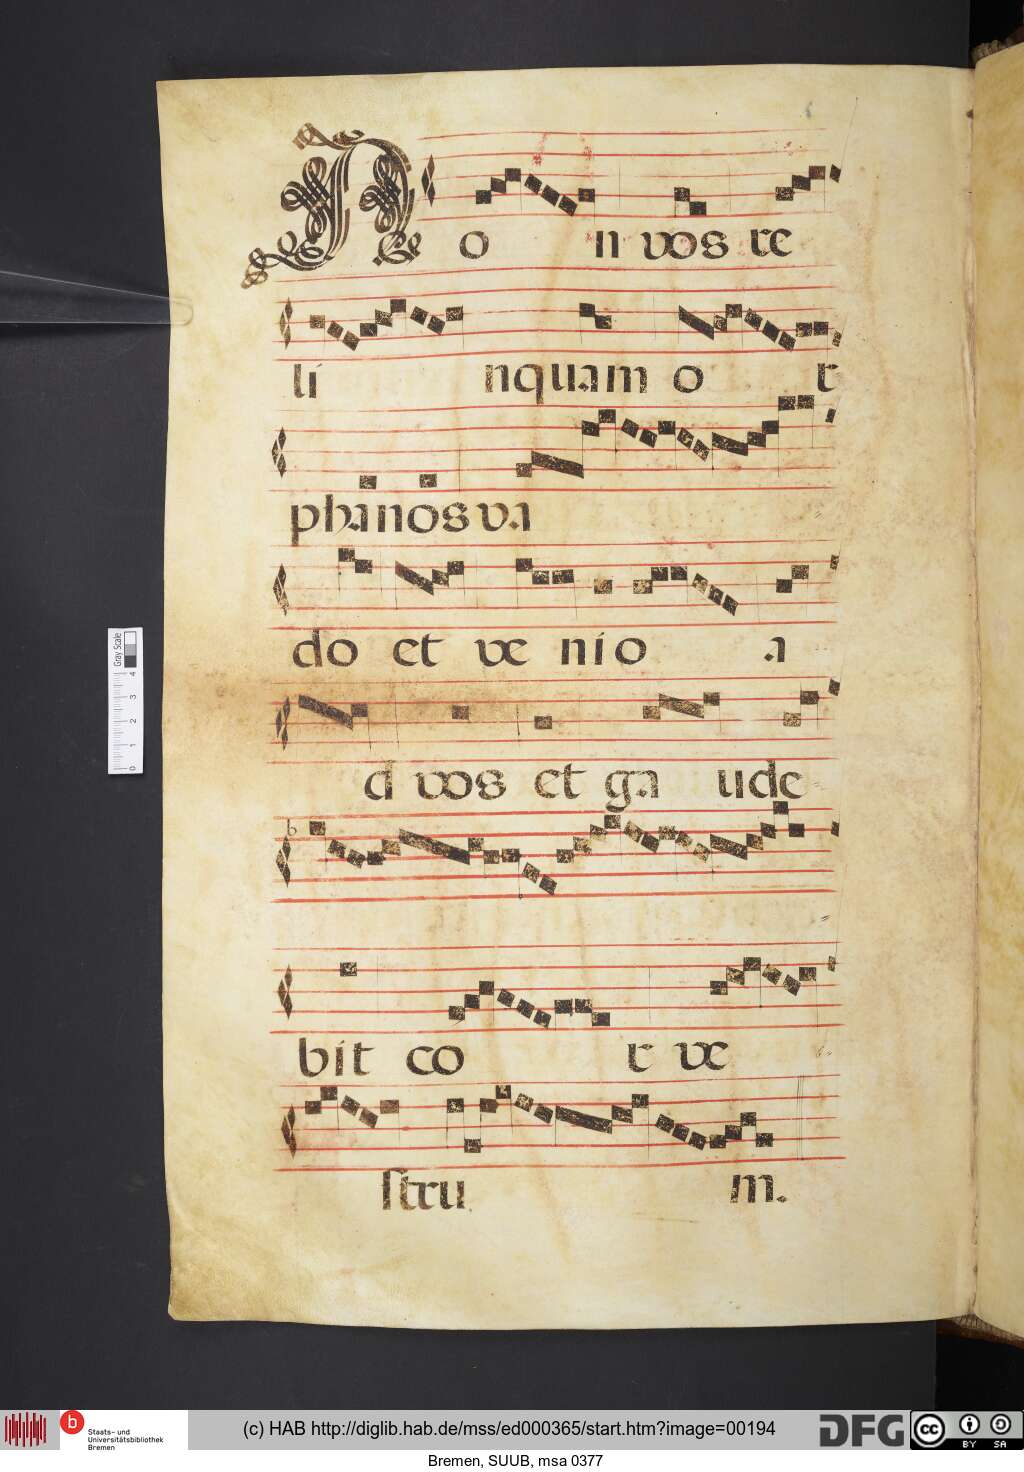 No n vos re
li nquam o r
phanos va
do et ve nio a
d vos et ga ude
b
bit co r ve
stru m.
Gray Scale
0 1 2 3 4
b Staats- und
Universitätsbibliothek
Bremen
(c) HAB http://diglib.hab.de/mss/ed000365/start.htm?image=00194
DFG
cc BY SA
Bremen, SUUB, msa 0377